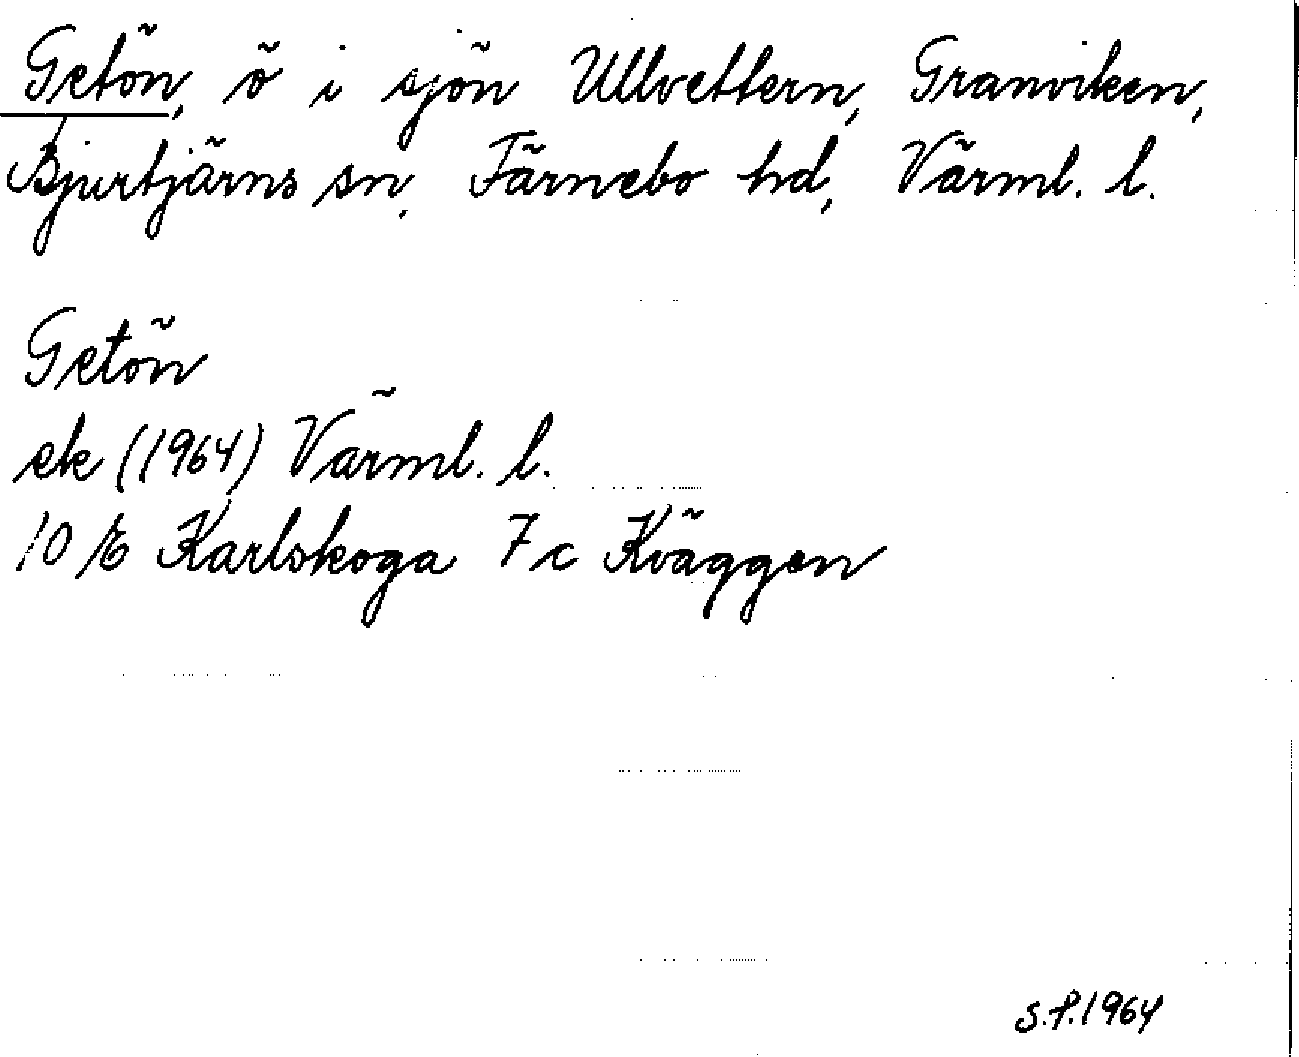 Getön, ö i sjön Ullvettern, Granviken,
Bjurtjärns sn, Färnebo hd, Värml. l.
Getön
ek (1964) Värml. l.
10 E Karlskoga 7 c Kväggen
S.P. 1964